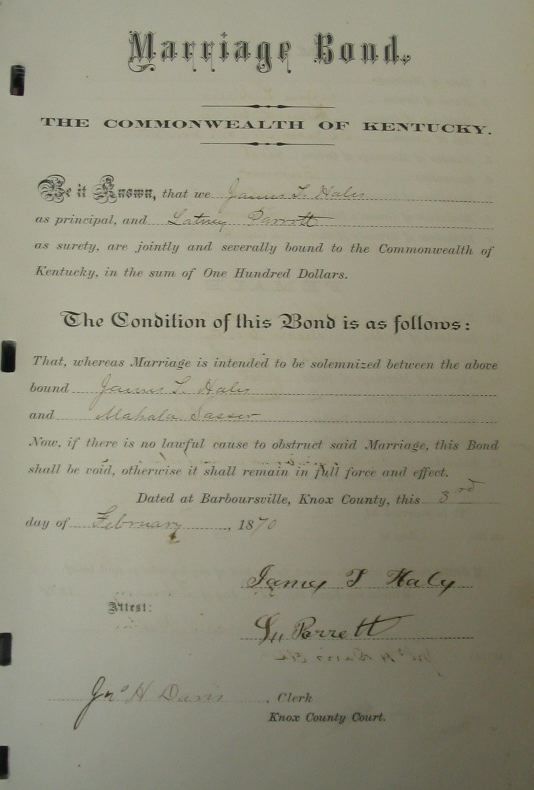 Marriage Bond.
THE COMMONWEALTH OF KENTUCKY.
Be it Known, that we James T. Hales
as principal, and Latney Parrott
as surety, are jointly and severally bound to the Commonwealth of
Kentucky, in the sum of One Hundred Dollars.
The Condition of this Bond is as follows:
That, whereas Marriage is intended to be solemnized between the above
bound James T. Hales
and Mahala Sasser
Now, if there is no lawful cause to obstruct said Marriage, this Bond
shall be void, otherwise it shall remain in full force and effect.
Dated at Barboursville, Knox County, this 3rd
day of February, 1870
James T Haly
Attest:
Parrett
Jno H Davis, Clerk
Knox County Court.